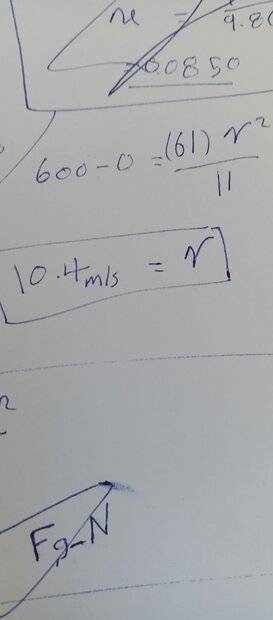 x = 9.80
= 0.0850
600 - 0 = (61) r²
11
10.4 m/s = r
2
Fg-N